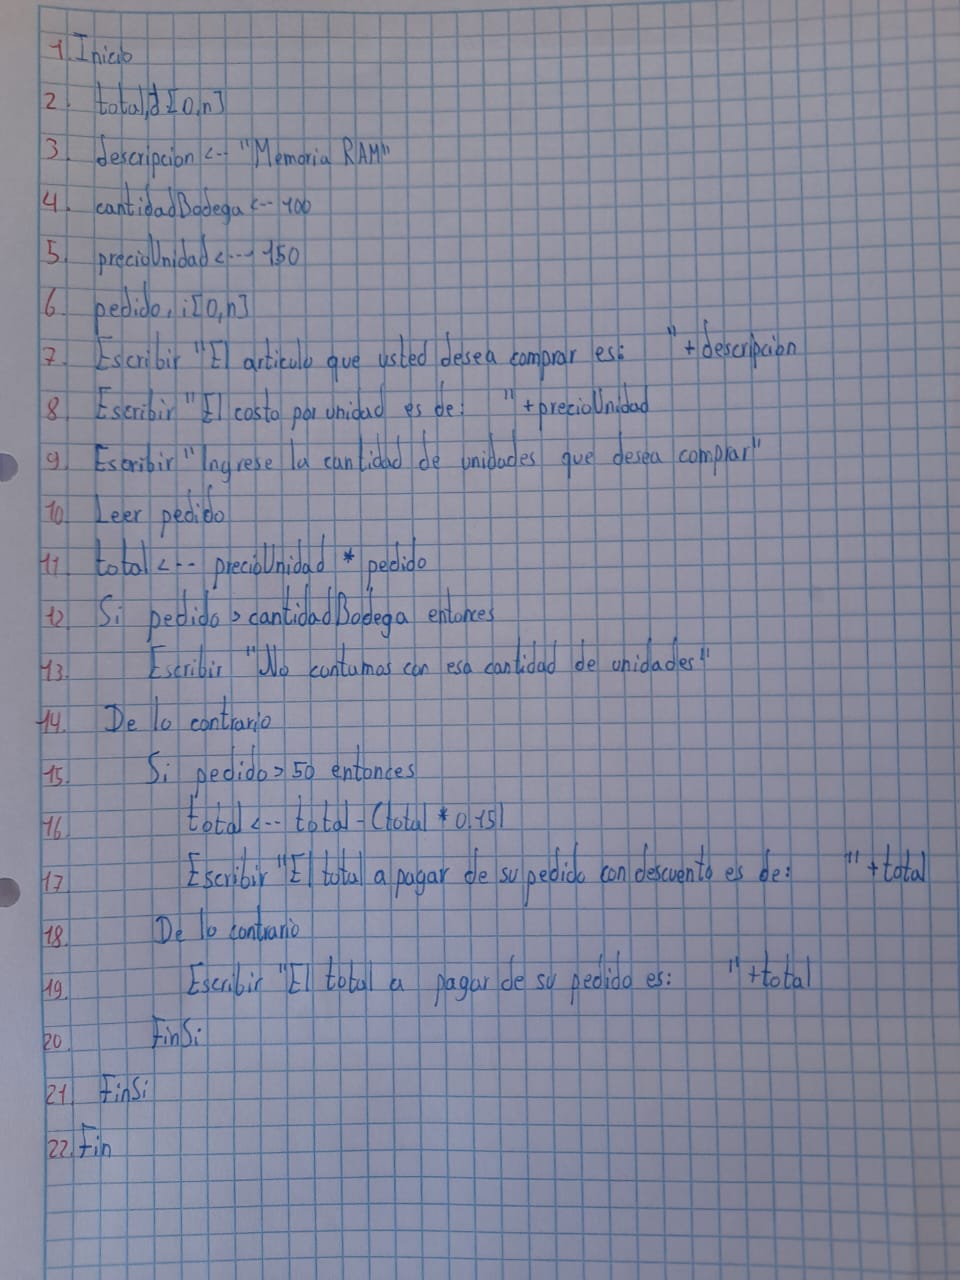 1. Inicio
2. total,d [0,n]
3. descripcion <-- "Memoria RAM"
4. cantidadBodega <-- 100
5. precioUnidad <--- 150
6. pedido, i[0,n]
7. Escribir "El articulo que usted desea comprar es: " + descripcion
8. Escribir "El costo por unidad es de: " + precioUnidad
9. Escribir "Ingrese la cantidad de unidades que desea comprar"
10. Leer pedido
11. total <-- precioUnidad * pedido
12. Si pedido > cantidadBodega entonces
13. Escribir "No contamos con esa cantidad de unidades"
14. De lo contrario
15. Si pedido > 50 entonces
16. total <-- total - (total * 0.15)
17. Escribir "El total a pagar de su pedido con descuento es de: " + total
18. De lo contrario
19. Escribir "El total a pagar de su pedido es: " + total
20. FinSi
21. FinSi
22. Fin